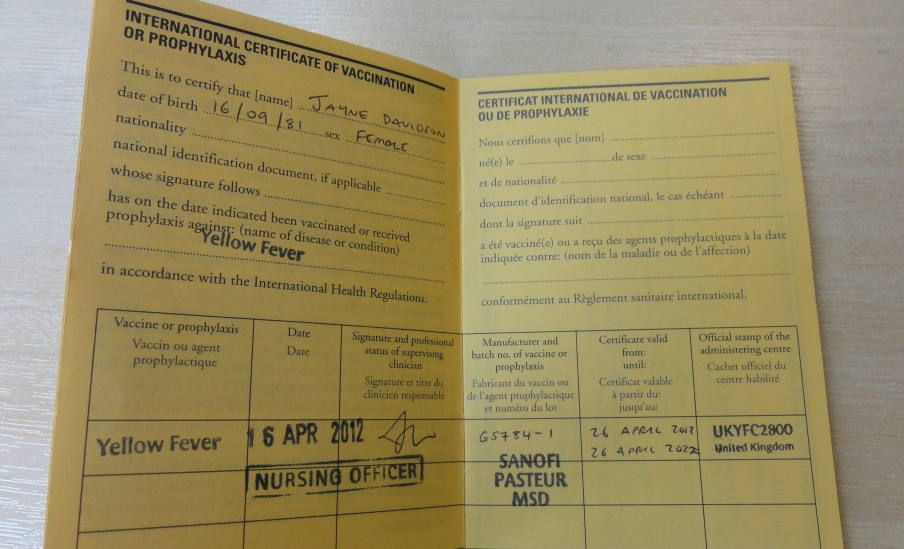 INTERNATIONAL CERTIFICATE OF VACCINATION
OR PROPHYLAXIS
This is to certify that [name] JAYNE DAVIDSON
date of birth 16/09/81 sex FEMALE
nationality
national identification document, if applicable
whose signature follows
has on the date indicated been vaccinated or received
prophylaxis against: (name of disease or condition)
Yellow Fever
in accordance with the International Health Regulations.
Vaccine or prophylaxis
Vaccin ou agent
prophylactique
Date
Date
Signature and professional
status of supervising
clinician
Signature et titre du
clinicien responsable
Yellow Fever
16 APR 2012
NURSING OFFICER
CERTIFICAT INTERNATIONAL DE VACCINATION
OU DE PROPHYLAXIE
Nous certifions que [nom]
né(e) le de sexe
et de nationalité
document d'identification national, le cas échéant
dont la signature suit
a été vacciné(e) ou a reçu des agents prophylactiques à la date
indiquée contre: (nom de la maladie ou de l'affection)
conformément au Règlement sanitaire international.
Manufacturer and
batch no. of vaccine or
prophylaxis
Fabricant du vaccin ou
de l'agent prophylactique
et numéro du lot
Certificate valid
from:
until:
Certificat valable
à partir du:
jusqu'au:
Official stamp of the
administering centre
Cachet officiel du
centre habilité
G5784-1
SANOFI
PASTEUR
MSD
26 APRIL 2012
26 APRIL 2022
UKYFC2800
United Kingdom